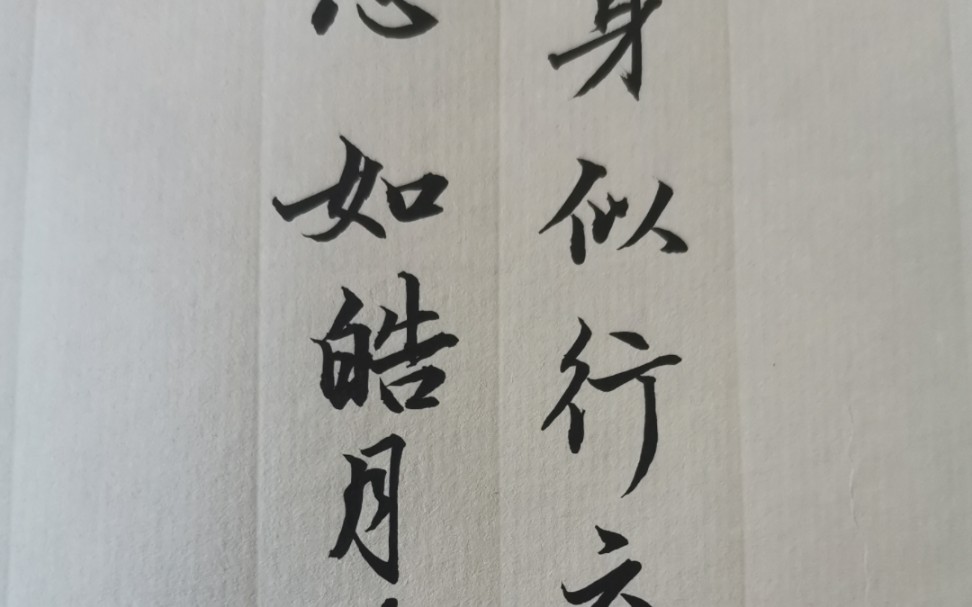 身似行云
如皓月